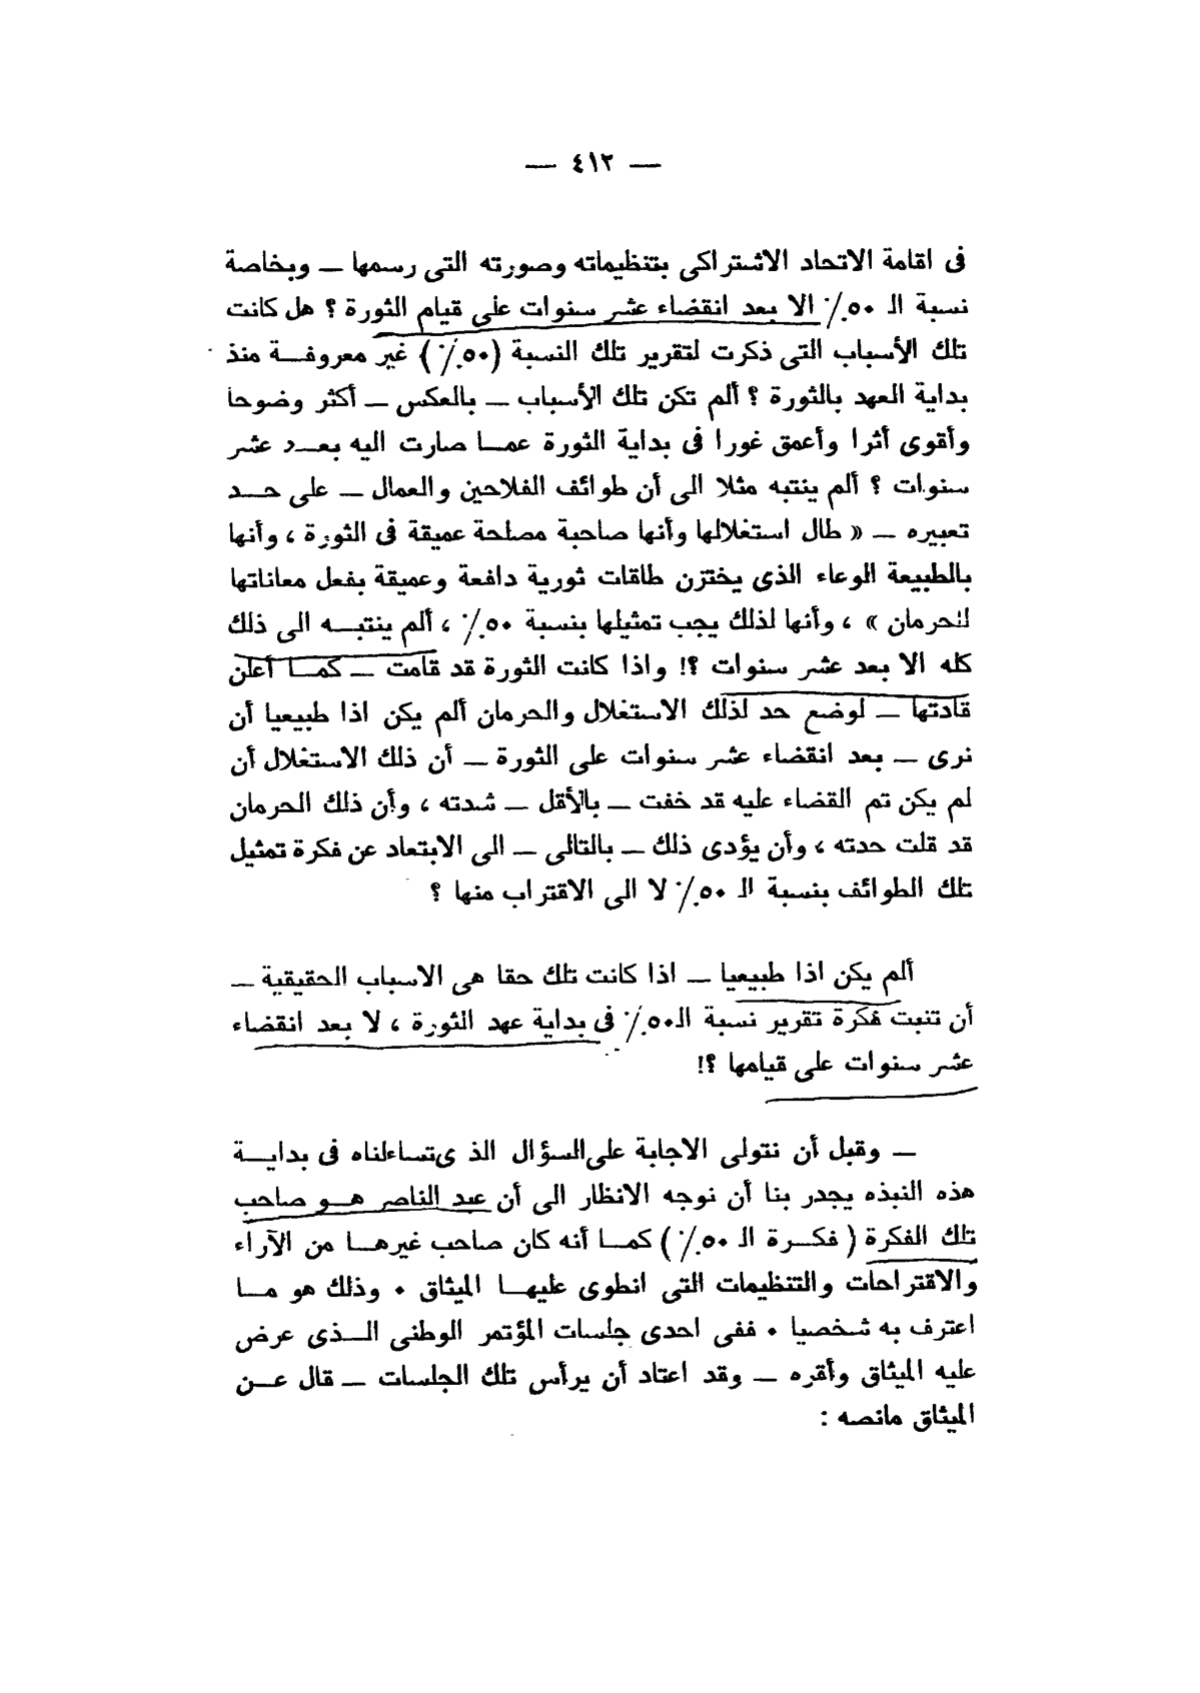 — ٤١٢ —
فى اقامة الاتحاد الاشتراكى بتنظيماته وصورته التى رسمها — وبخاصة
نسبة الـ ٥٠٪ الا بعد انقضاء عشر سنوات على قيام الثورة ؟ هل كانت
تلك الأسباب التى ذكرت لتقرير تلك النسبة (٥٠٪) غير معروفــة منذ
بداية العهد بالثورة ؟ ألم تكن تلك الأسباب — بالعكس — أكثر وضوحا
وأقوى أثرا وأعمق غورا فى بداية الثورة عمــا صارت اليه بعــد عشر
سنوات ؟ ألم ينتبه مثلا الى أن طوائف الفلاحين والعمال — على حــد
تعبيره — « طال استغلالها وأنها صاحبة مصلحة عميقة فى الثورة ، وأنها
بالطبيعة الوعاء الذى يختزن طاقات ثورية دافعة وعميقة بفعل معاناتها
للحرمان » ، وأنها لذلك يجب تمثيلها بنسبة ٥٠٪ ، ألم ينتبــه الى ذلك
كله الا بعد عشر سنوات ؟! واذا كانت الثورة قد قامت — كمــا أعلن
قادتها — لوضع حد لذلك الاستغلال والحرمان ألم يكن اذا طبيعيا أن
نرى — بعد انقضاء عشر سنوات على الثورة — أن ذلك الاستغلال أن
لم يكن تم القضاء عليه قد خفت — بالأقل — شدته ، وأن ذلك الحرمان
قد قلت حدته ، وأن يؤدى ذلك — بالتالى — الى الابتعاد عن فكرة تمثيل
تلك الطوائف بنسبة الـ ٥٠٪ لا الى الاقتراب منها ؟
ألم يكن اذا طبيعيا — اذا كانت تلك حقا هى الاسباب الحقيقية —
أن تنبت فكرة تقرير نسبة الـ٥٠٪ فى بداية عهد الثورة ، لا بعد انقضاء
عشر سنوات على قيامها ؟!
— وقبل أن نتولى الاجابة على السؤال الذ ىتساءلناه فى بدايــة
هذه النبذه يجدر بنا أن نوجه الانظار الى أن عبد الناصر هــو صاحب
تلك الفكرة ( فكــرة الـ ٥٠٪ ) كمــا أنه كان صاحب غيرهــا من الآراء
والاقتراحات والتنظيمات التى انطوى عليهــا الميثاق . وذلك هو مــا
اعترف به شخصيا . ففى احدى جلسات المؤتمر الوطنى الــذى عرض
عليه الميثاق وأقره — وقد اعتاد أن يرأس تلك الجلسات — قال عــن
الميثاق مانصه :